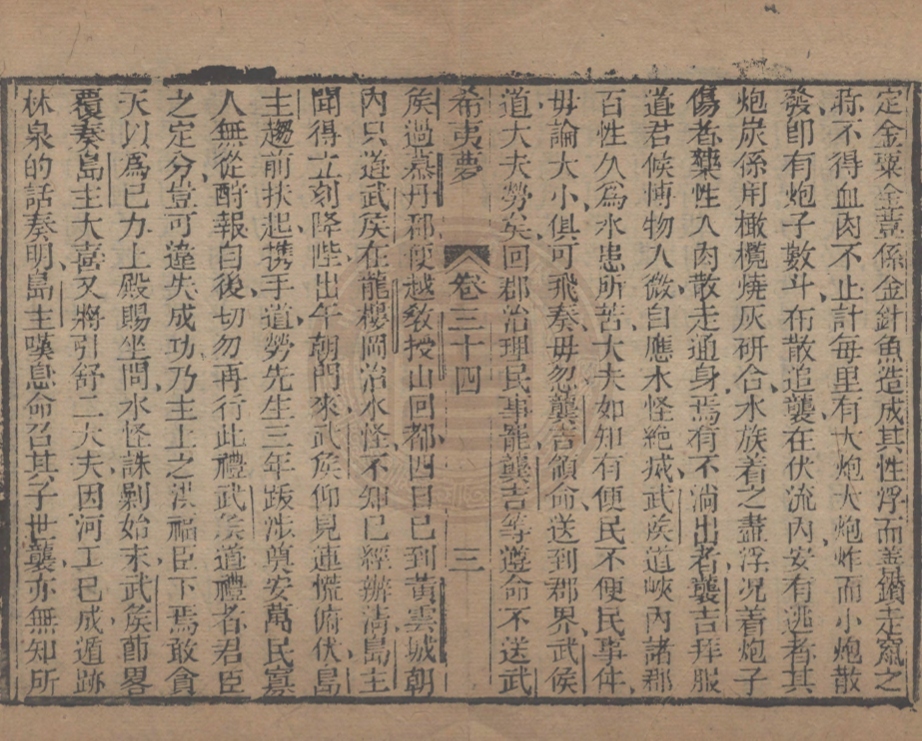 定金粟金荳係金針魚造成其性浮而善鑽走竄之
際不得血肉不止計每里有大炮大炮炸而小炮散
發卽有炮子數斗布散追襲在伏流內安有逃者其
炮炭係用橄欖燒灰研合水族着之盡浮况着炮子
傷者藥性入肉散走通身焉有不淌出者龔吉拜服
道君候博物入微自應水怪絶烕武矦道峽內諸郡
百性久爲水患所苦大夫如知有便民不便民事件
毋論大小俱可飛奏毋忽龔吉領命送到郡界武侯
道大夫勞矣回郡治理民事罷龔吉等遵命不送武
希夷夢 卷三十四 三
矦過慕丹郡便越敎授山回都四日已到黄雲城朝
內只道武矦在龍樓岡治水怪不知已經辦淸島主
聞得立刻降陛出午朝門來武矦仰見連慌俯伏島
主趨前扶起携手道勞先生三年跋涉奠安萬民寡
人無從酧報自後切勿再行此禮武矦道禮者君臣
之定分豈可違失成功乃主上之洪福臣下焉敢貪
天以爲已力上殿賜坐問水怪誅剿始末武矦莭畧
覆奏島主大喜又將引舒二大夫因河工已成遁跡
林泉的話奏明島主嘆息命召其子世襲亦無知所